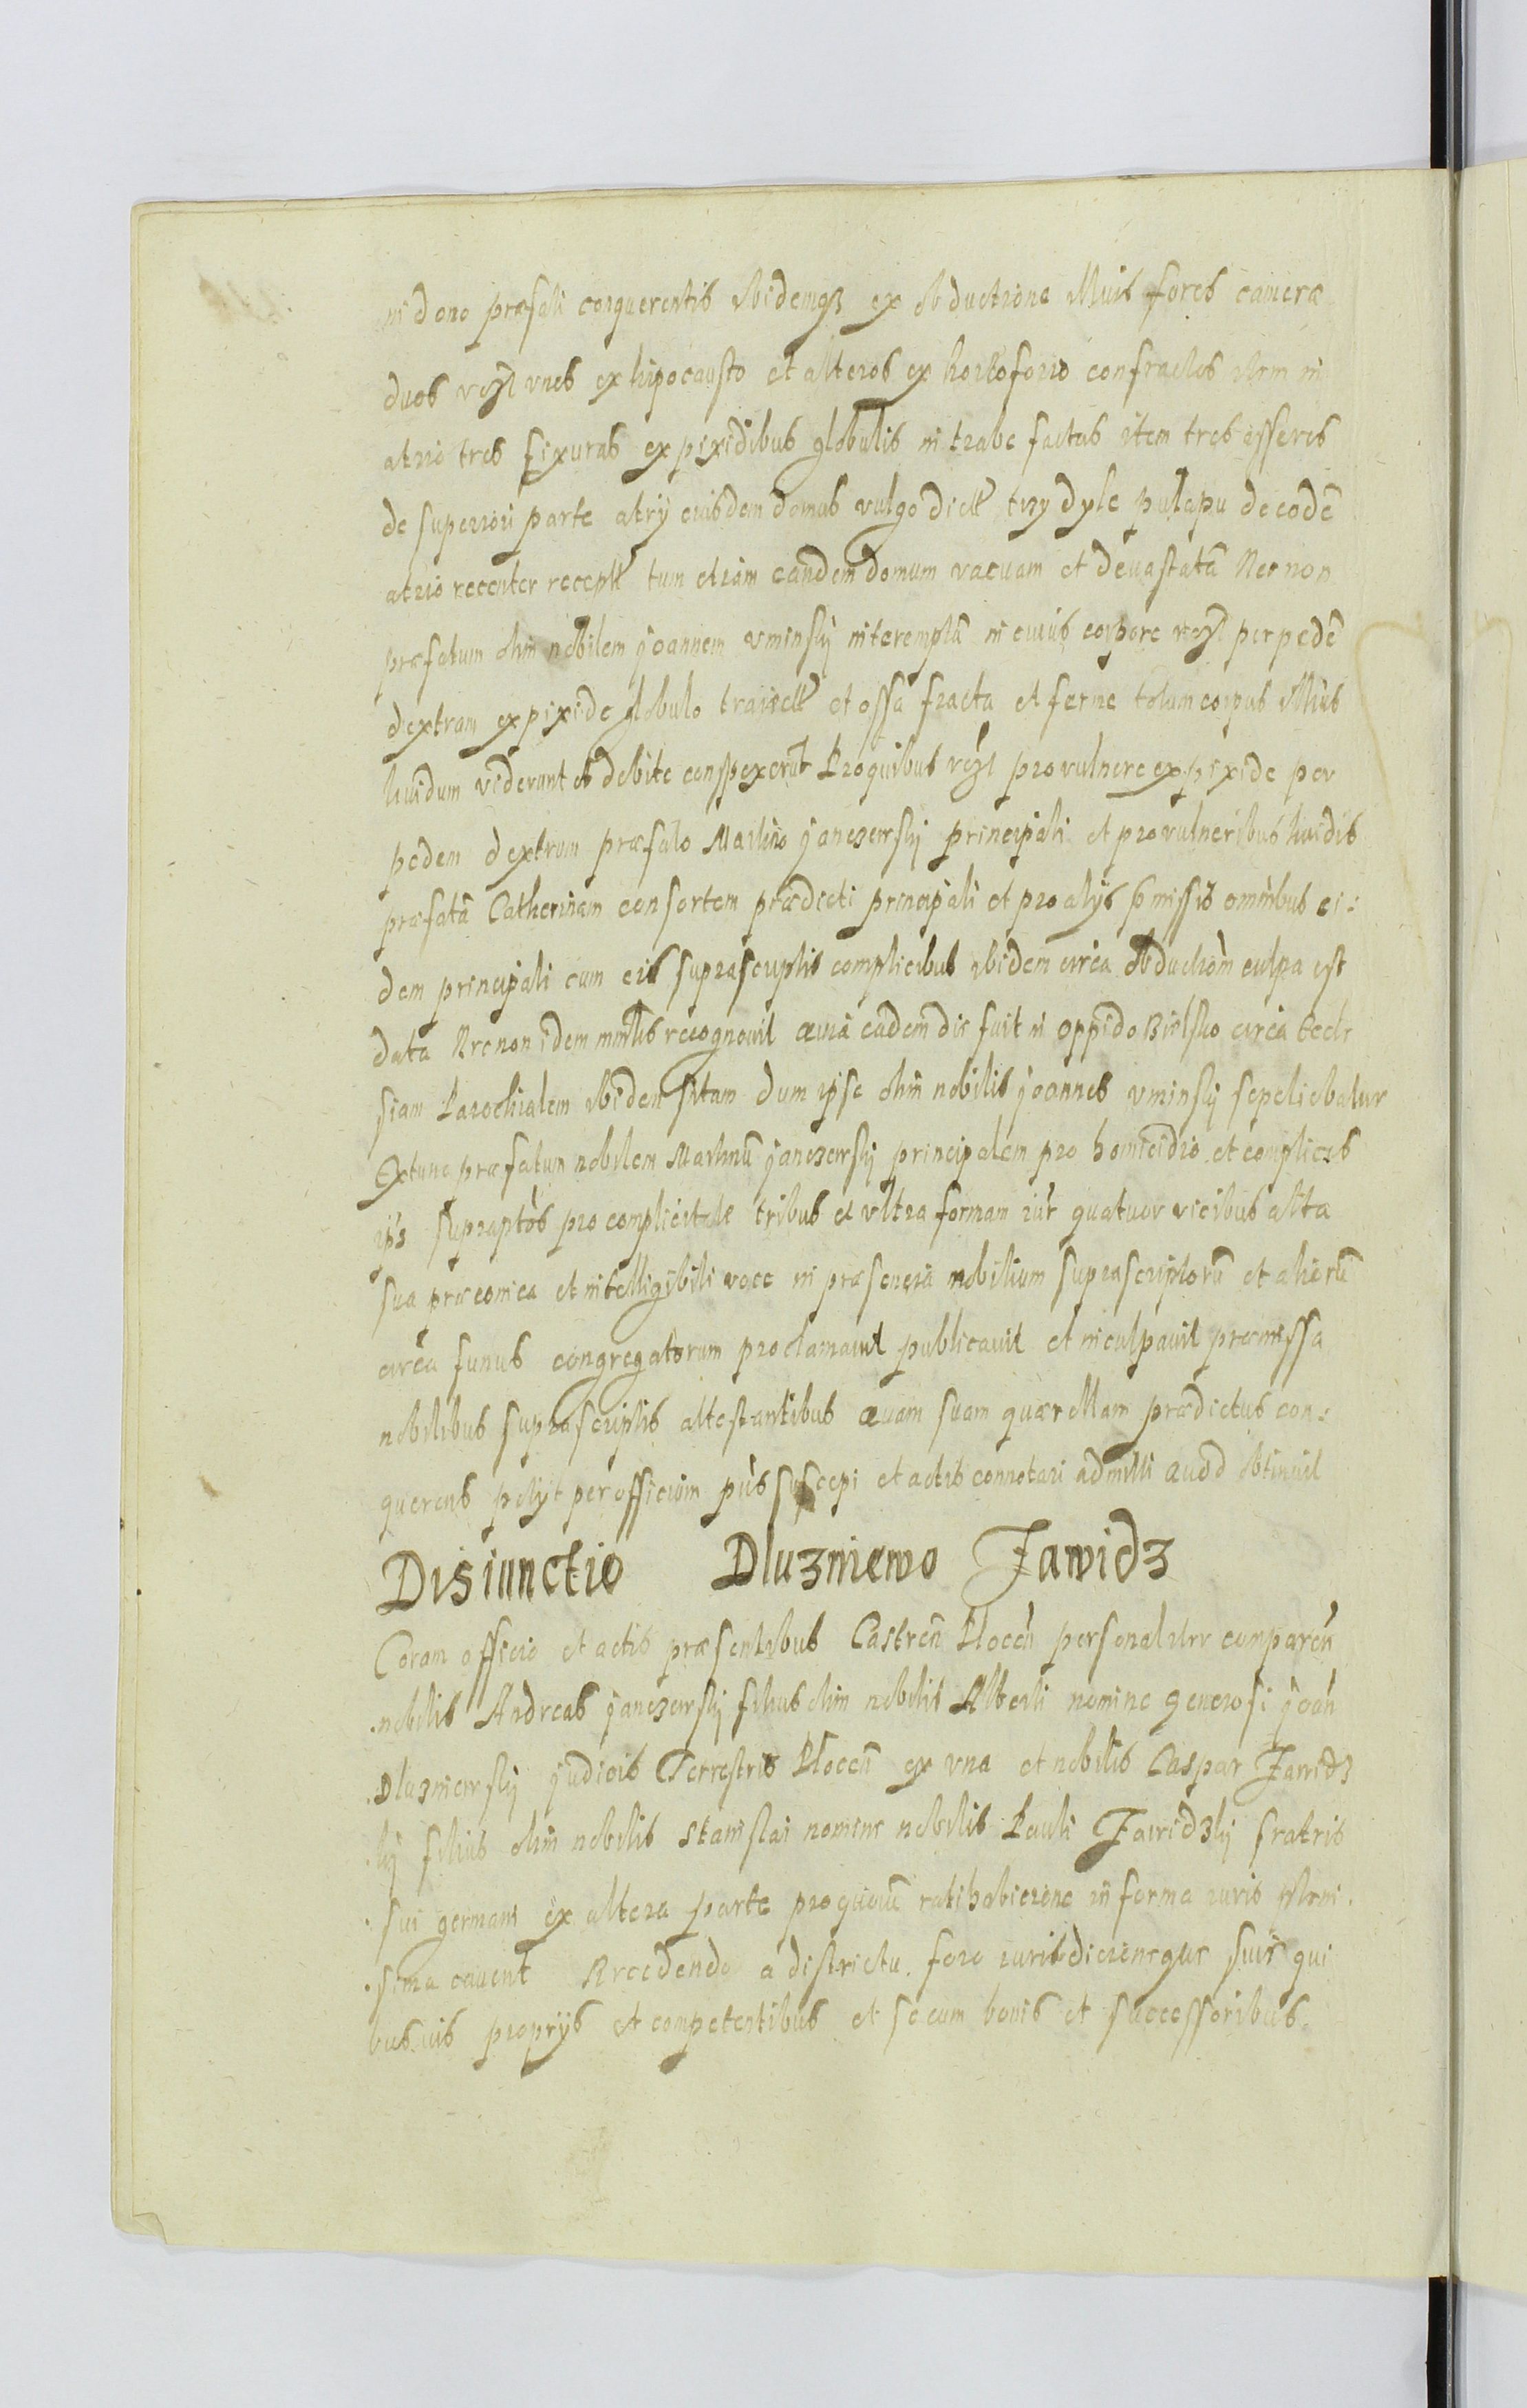 in domo præfati conquerentis ibidemqȝ ex obductione illius fores cameræ
duos vȝl unos ex hipocausto et alteros ex horto foris confractos item in
atrio tres fixuras ex pixidibus globulis in trabe factas item tres asseres
de superiori parte atrÿ eiusdem domus vulgo dict trzy dyle pulapu de eodē
atrio recenter recept tum etiam eandem domum vacuam et deuastatā Nec non
præfatum olim nobilem Joannem Uminskÿ interemptū in cuius corpore vȝl per pedē
dextrum ex pixide globulo traiect et ossa fracta et ferme totum corpus illius
liuidum viderunt et debite conspexerūt Pro quibus vȝl pro vulnere ex pixide per
pedem dextrum præfato Martino Janczewskÿ principali et pro vulneribus liuidis
præfatā Catherinam consortem prædicti principali et pro alÿs pmissis omnibus ei:
dem principali cum eis suprascriptis complicibus ibidem circa obductiom culpa est
data Necnon idem minlis recognouit quia eadem die fuit in oppido Bielsko circa Eccle
siam Parochialem ibidem sitam dum ipse olim nobilis Joannes Uminskÿ sepeliebatur
Extunc præfatum nobilem Martinū Janczewskÿ principalem pro homicidio et complices
ips supraptos pro complicitate tribus et ultra formam iur quatuor vicibus alta
sua præconica et intelligibili voce in præsencia nobilium suprascriptorū et aliorū
circa funus congregatorum proclamauit publicauit et inculpauit præmissa
nobilibus suprascriptis attestantibus Quam suam quærellam prædictus con:
querens petÿt per officium pñs suscepi et actis connotari admitti Quod obtinuit
Disiunctio Dluzniewo Jawidz
Coram officio et actis præsentibus Castreñ Plocēn personaliter comparēn
nobilis Andreas Janczewskÿ filius olim nobilis Alberti nomine generosi Joañ
Dluzniewskÿ Judicis Terrestris Plocēn ex una et nobilis Caspar Jawidz
kÿ filius olim nobilis Stanislai nomine nobilis Pauli Jawidzkÿ fratris
sui germani ex altera parte pro quoū ratihabicione in forma iuris pleni
sima cauent Recedendo a districtu foro iurisdicioneque suis qui
busuis proprÿs et competentibus et se cum bonis et successoribus